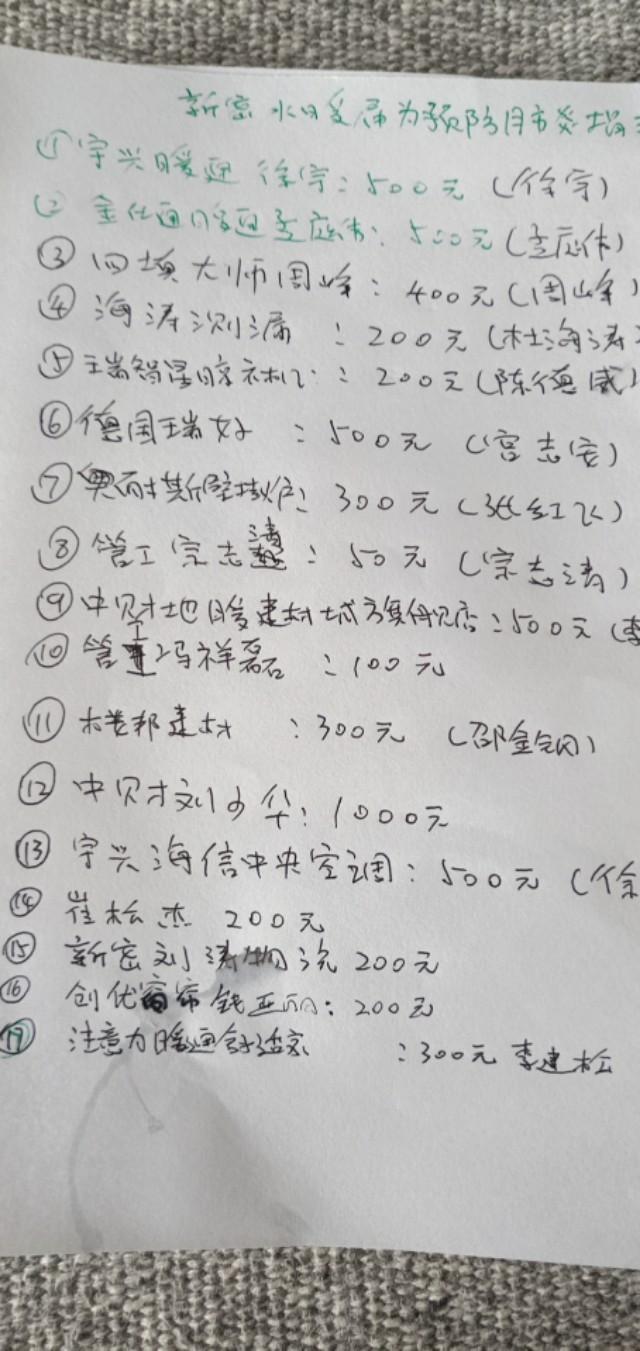 新密水暖届为预防肺炎捐
① 宇兴暖通 徐宇：500元（徐宇）
② 金仕通暖通 李应伟：500元（李应伟）
③ 回填大师周峰：400元（周峰）
④ 海涛测漏：200元（杜海涛
⑤ 瑞智暖：200元（陈德威）
⑥ 德国瑞好：500元（宫志安）
⑦ 奥耐斯壁挂炉：300元（张红飞）
⑧ 管工宗志清：50元（宗志清）
⑨ 中财地暖建材城旗舰店：500元（李
⑩ 管工冯祥磊：100元
⑪ 楼邦建材：300元（邵金钢）
⑫ 中财刘少华：1000元
⑬ 宇兴海信中央空调：500元（徐
⑭ 崔松杰 200元
⑮ 新密刘涛物流 200元
⑯ 创优窗帘钱亚丽：200元
⑰ 注意力暖通舒适家：300元 李建松